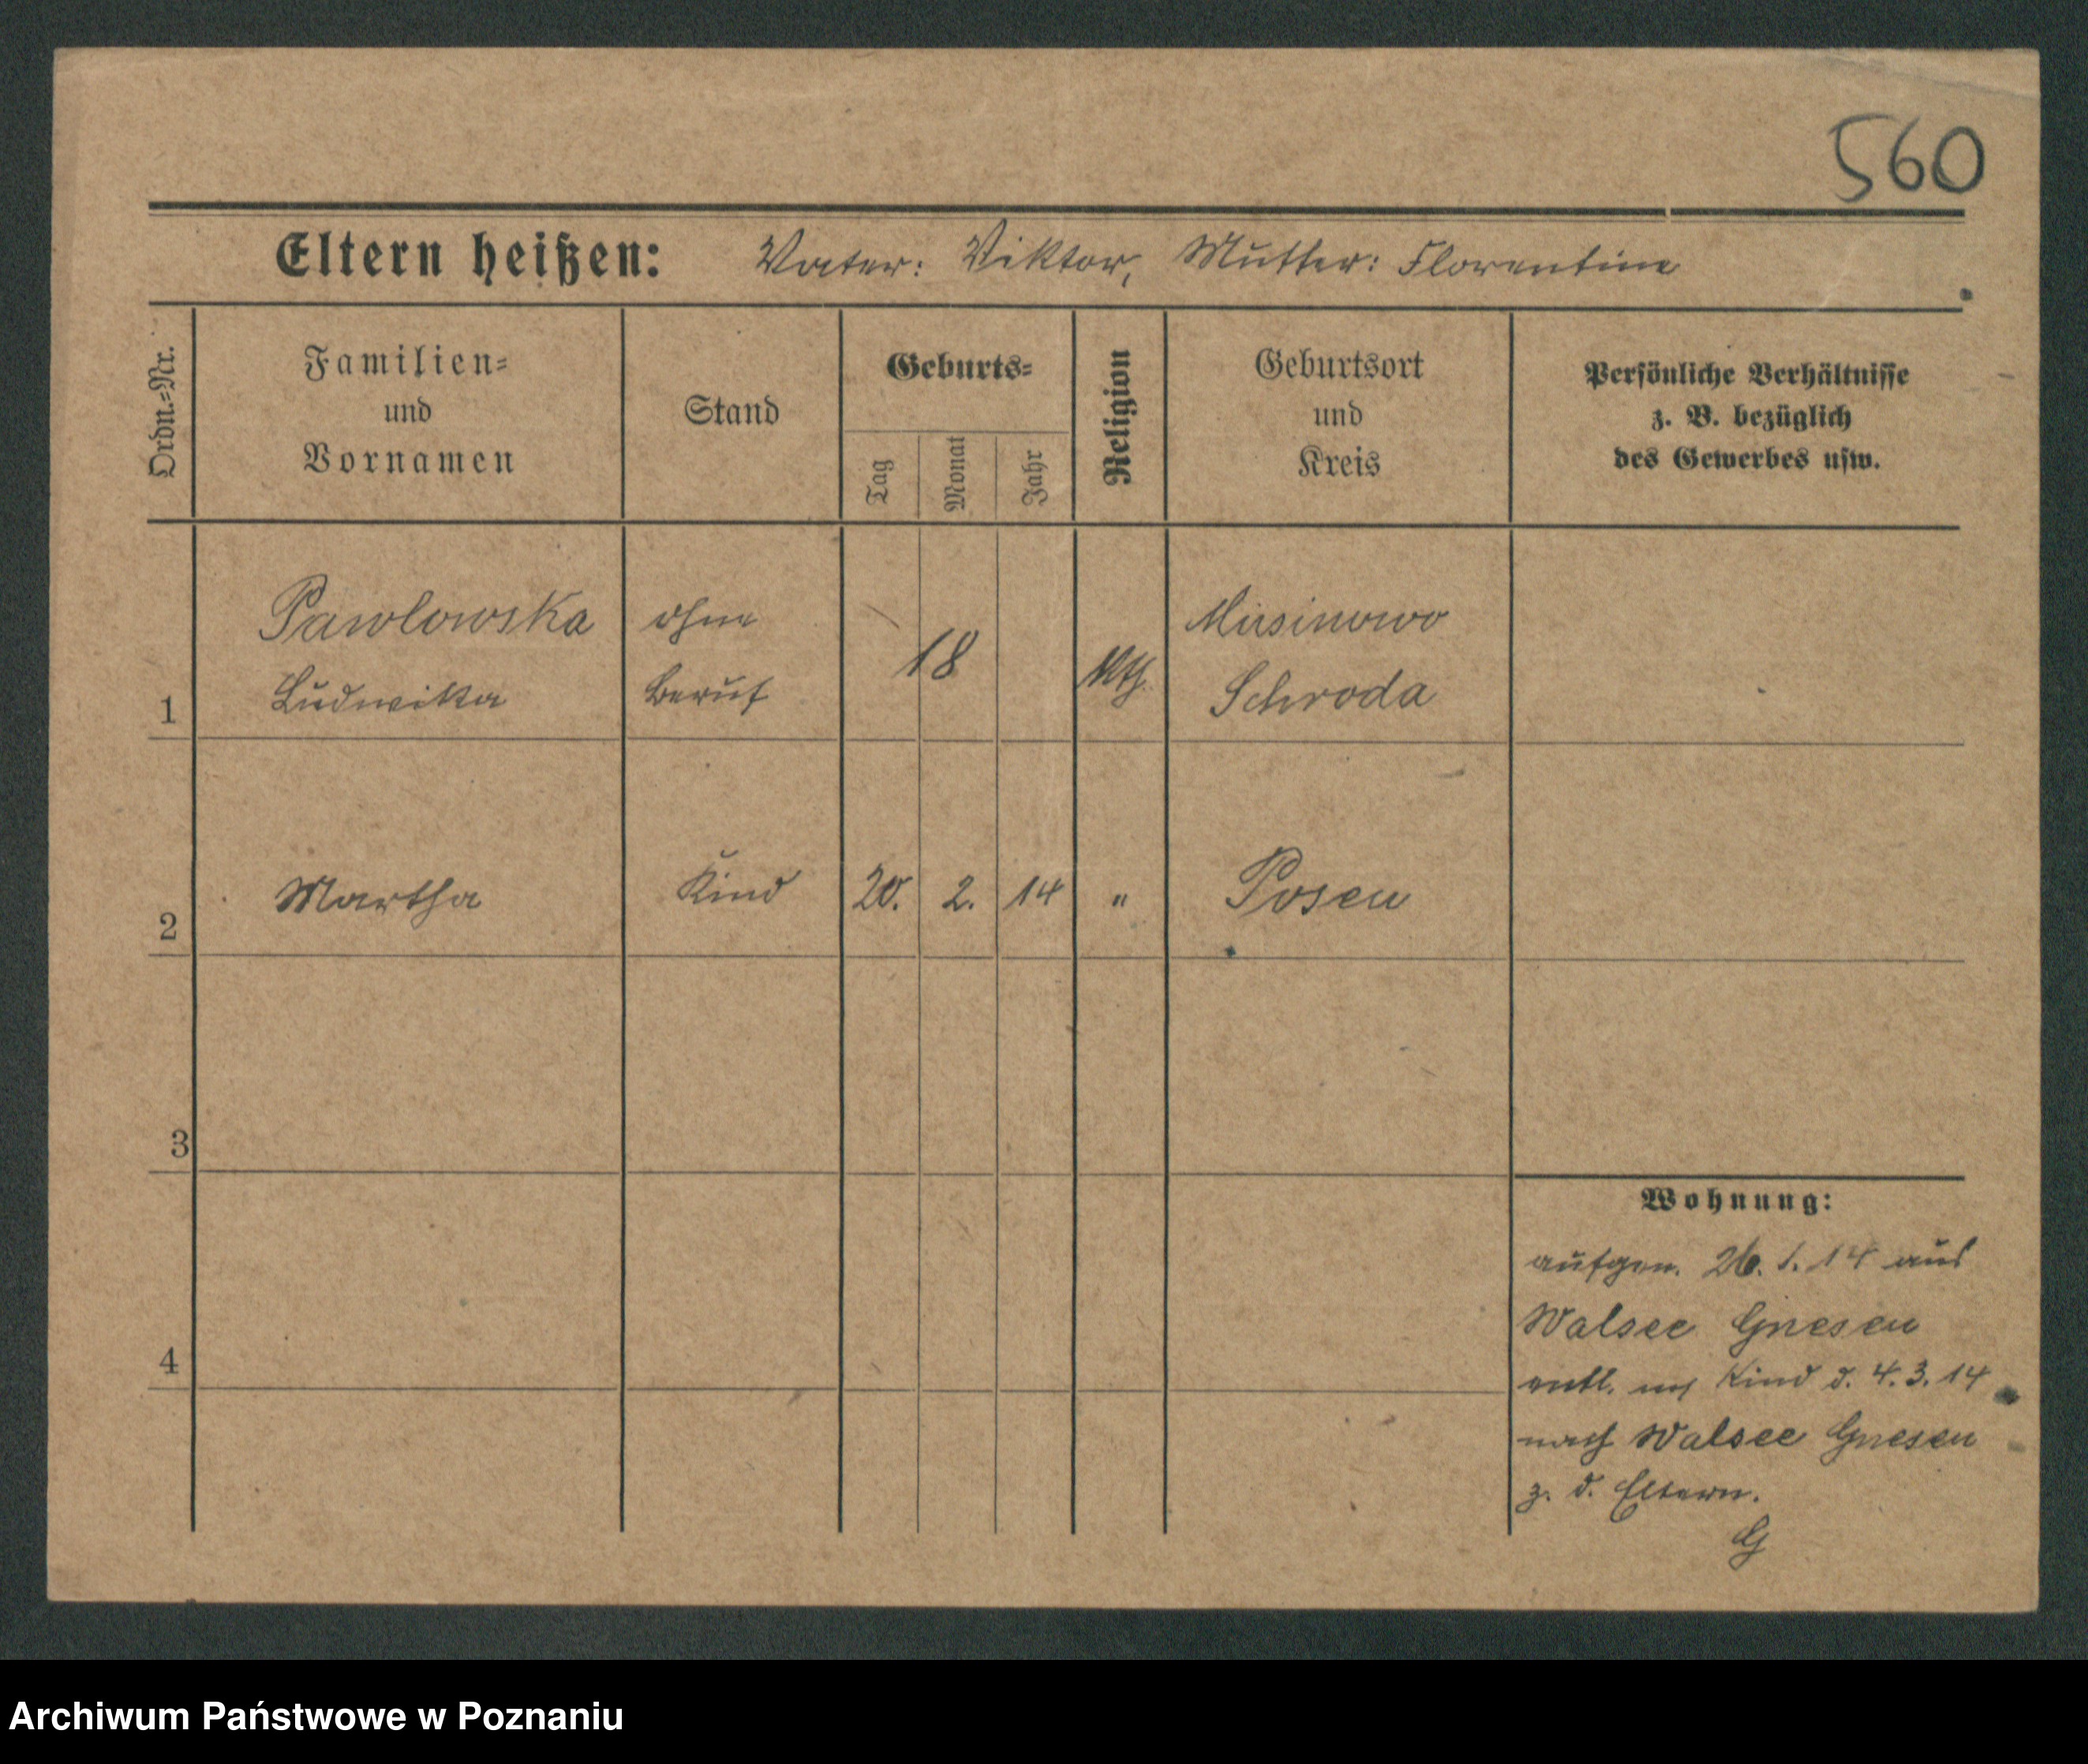 560
Eltern heißen: Vater: Viktor, Mutter: Florentine
Ordn.-Nr.
Familien-
und
Vornamen
Stand
Geburts-
Tag
Monat
Jahr
Religion
Geburtsort
und
Kreis
Persönliche Verhältnisse
z. B. bezüglich
des Gewerbes usw.
1
Pawlowska
Ludwika
ohne
Beruf
18
kth.
Schroda
2
Martha
Kind
20. 2. 14
"
Posen
3
4
Wohnung:
aufgen. 26. 1. 14 aus
Walsee Gnesen
entl. Kind d. 4. 3. 14
nach Walsee Gnesen
z. d. Eltern.
G
Archiwum Państwowe w Poznaniu